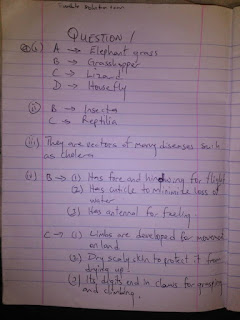 QUESTION 1
A → Elephant grass
B → Grasshopper
C → Lizard
D → Housefly
(ii) B → Insecta
C → Reptilia
(iii) They are vectors of many diseases such
as cholera
B → (1) Has fore and hind wing for flight
(2) Has cuticle to minimize loss of
water
(3) Has antennal for feeling
C → (1) Limbs are developed for movement
on land
(2) Dry scaly skin to protect it from
drying up
(3) Its digits end in claws for grasping
and climbing.